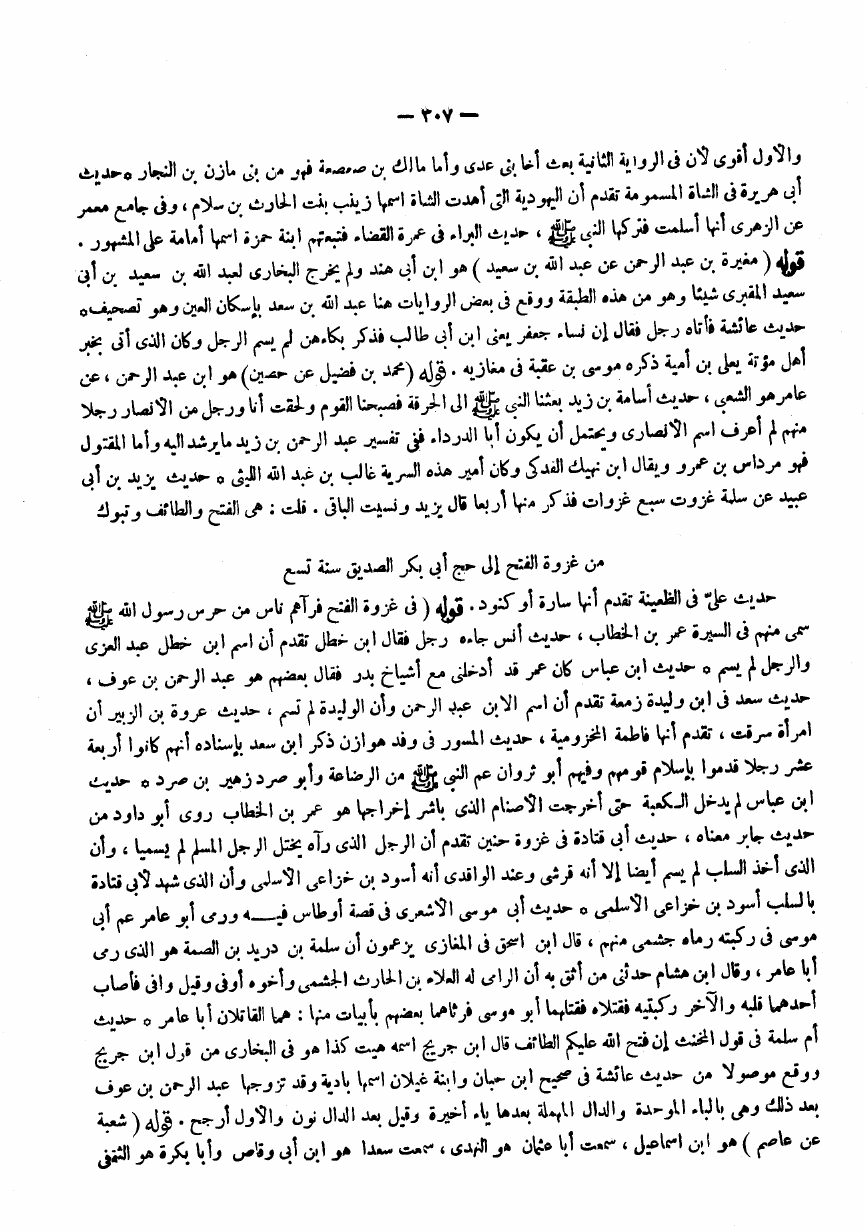 — ٣٠٧ —
والأول أقوى لأن فى الرواية الثانية بعث أخا بنى عدى وأما مالك بن صعصعة فهو من بنى مازن بن النجار ٥ حديث
أبى هريرة فى الشاة المسمومة تقدم أن اليهودية التى أهدت الشاة اسمها زينب بنت الحارث بن سلام ، وفى جامع معمر
عن الزهرى أنها أسلمت فتركها النبى ﷺ ، حديث البراء فى عمرة القضاء فتبعتهم ابنة حمزة اسمها أمامة على المشهور .
قوله ( مغيرة بن عبد الرحمن عن عبد الله بن سعيد ) هو ابن أبى هند ولم يخرج البخارى لعبد الله بن سعيد بن أبى
سعيد المقبرى شيئا وهو من هذه الطبقة ووقع فى بعض الروايات هنا عبد الله بن سعد بإسكان العين وهو تصحيف ٥
حديث عائشة فأتاه رجل فقال إن نساء جعفر يعنى ابن أبى طالب فذكر بكاءهن لم يسم الرجل وكان الذى أتى بخبر
أهل مؤتة يعلى بن أمية ذكره موسى بن عقبة فى مغازيه . قوله (محمد بن فضيل عن حصين) هو ابن عبد الرحمن ، عن
عامر هو الشعبى ، حديث أسامة بن زيد بعثنا النبى ﷺ الى الحرقة فصبحنا القوم ولحقت أنا ورجل من الأنصار رجلا
منهم لم أعرف اسم الأنصارى ويحتمل أن يكون أبا الدرداء ففى تفسير عبد الرحمن بن زيد ما يرشد اليه وأما المقتول
فهو مرداس بن عمرو ويقال ابن نهيك الفدكى وكان أمير هذه السرية غالب بن عبد الله الليثى ٥ حديث يزيد بن أبى
عبيد عن سلمة غزوت سبع غزوات فذكر منها أربعا قال يزيد ونسيت الباقى . قلت : هى الفتح والطائف وتبوك
من غزوة الفتح إلى حج أبى بكر الصديق سنة تسع
حديث علىّ فى الظعينة تقدم أنها سارة أو كنود . قوله ( فى غزوة الفتح فرآهم ناس من حرس رسول الله ﷺ
سمى منهم فى السيرة عمر بن الخطاب ، حديث أنس جاءه رجل فقال ابن خطل تقدم أن اسم ابن خطل عبد العزى
والرجل لم يسم ٥ حديث ابن عباس كان عمر قد أدخلنى مع أشياخ بدر فقال بعضهم هو عبد الرحمن بن عوف ،
حديث سعد فى ابن وليدة زمعة تقدم أن اسم الابن عبد الرحمن وأن الوليدة لم تسم ، حديث عروة بن الزبير أن
امرأة سرقت ، تقدم أنها فاطمة المخزومية ، حديث المسور فى وفد هوازن ذكر ابن سعد بإسناده أنهم كانوا أربعة
عشر رجلا قدموا بإسلام قومهم وفيهم أبو ثروان عم النبى ﷺ من الرضاعة وأبو صرد زهير بن صرد ٥ حديث
ابن عباس لم يدخل الكعبة حتى أخرجت الأصنام الذى باشر إخراجها هو عمر بن الخطاب روى أبو داود من
حديث جابر معناه ، حديث أبى قتادة فى غزوة حنين تقدم أن الرجل الذى رآه يختل الرجل المسلم لم يسميا ، وأن
الذى أخذ السلب لم يسم أيضا إلا أنه قرشى وعند الواقدى أنه أسود بن خزاعى الأسلمى وأن الذى شهد لأبى قتادة
بالسلب أسود بن خزاعى الأسلمى ٥ حديث أبى موسى الأشعرى فى قصة أوطاس فيه ورمى أبو عامر عم أبى
موسى فى ركبته رماه جشمى منهم ، قال ابن اسحق فى المغازى يزعمون أن سلمة بن دريد بن الصمة هو الذى رمى
أبا عامر ، وقال ابن هشام حدثنى من أثق به أن الرامى له العلاء بن الحارث الجشمى وأخوه أوفى وقيل وافى فأصاب
أحدهما قلبه والآخر ركبتيه فقتلاه فقتلهما أبو موسى فرثاهما بعضهم بأبيات منها : هما القاتلان أبا عامر ٥ حديث
أم سلمة فى قول المخنث إن فتح الله عليكم الطائف قال ابن جريج اسمه هيت كذا هو فى البخارى من قول ابن جريج
ووقع موصولا من حديث عائشة فى صحيح ابن حبان وابنة غيلان اسمها بادية وقد تزوجها عبد الرحمن بن عوف
بعد ذلك وهى بالباء الموحدة والدال المهملة بعدها ياء أخيرة وقيل بعد الدال نون والأول أرجح . قوله ( شعبة
عن عاصم ) هو ابن اسماعيل ، سمعت أبا عثمان هو النهدى ، سمعت سعدا هو ابن أبى وقاص وأبا بكرة هو الثقفى